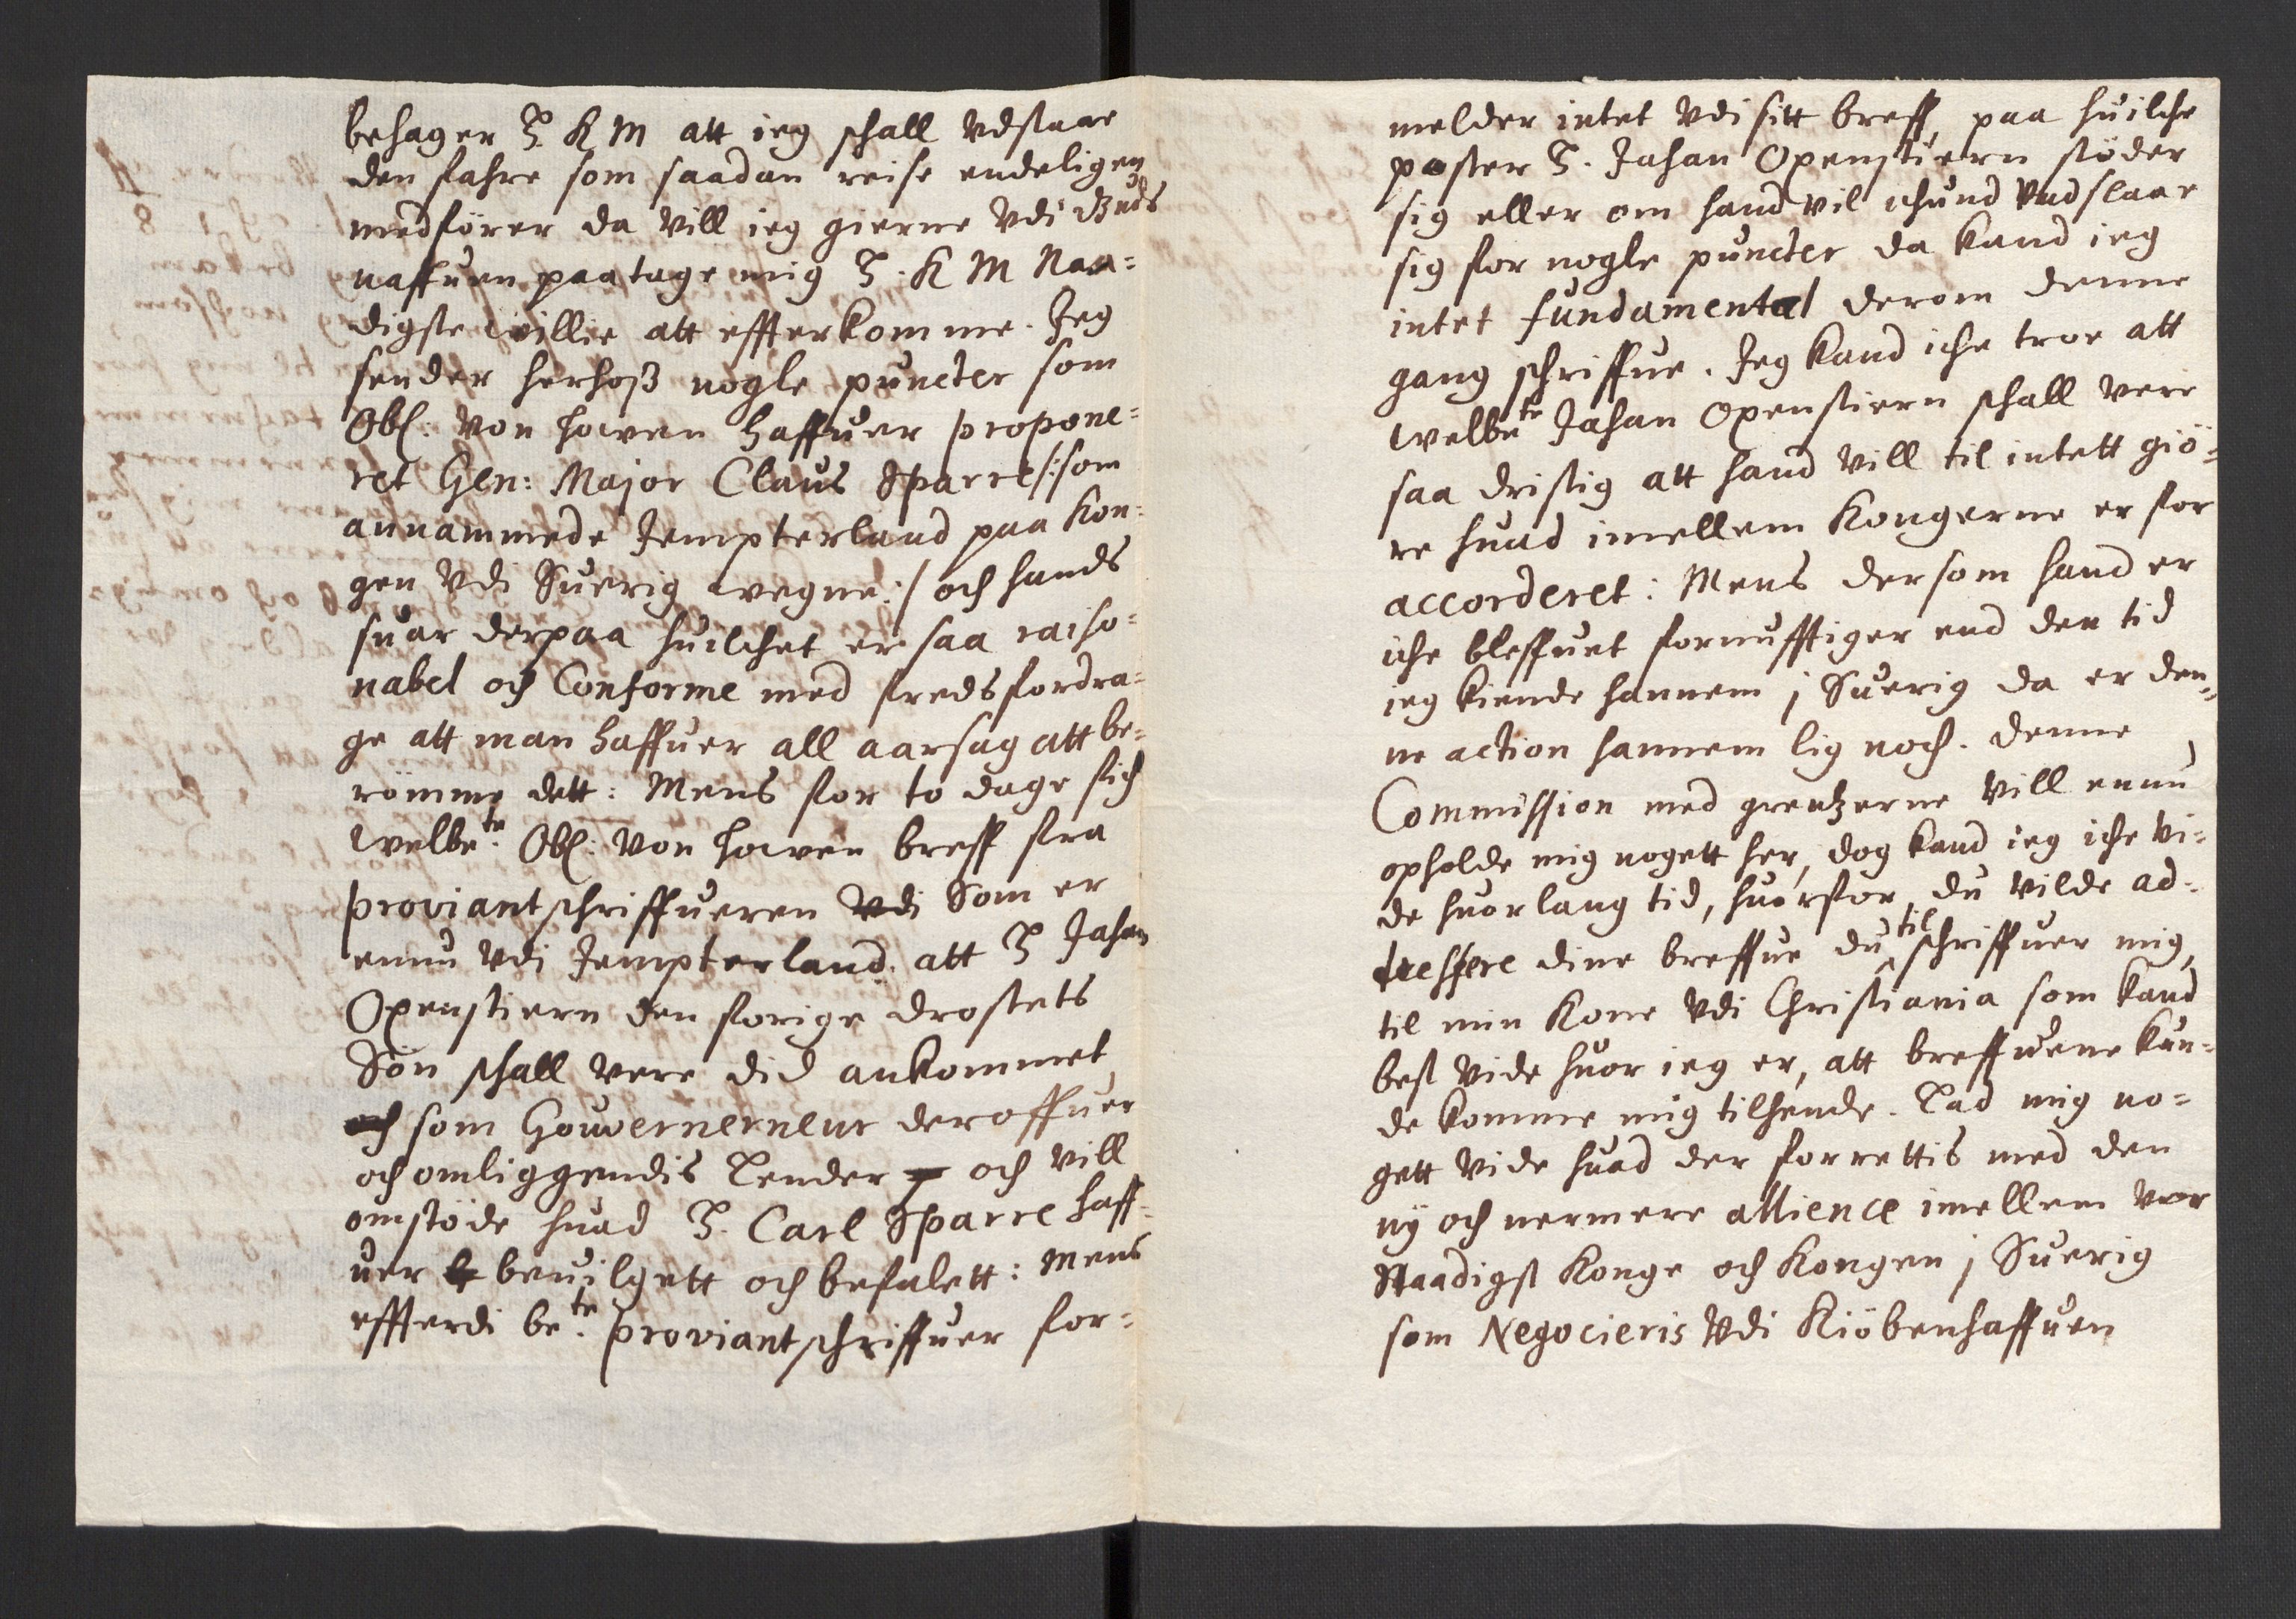 behager H. K M att ieg schall vdstaae
den fahre som saadan reise endeligen
medförer da vill ieg gierne vdi Guds
naffuen paatage mig H. K M Naa=
digste willie att effterkomme. Jeg
sender herhoß nogle puncter som
Obl: von Howen haffuer propone=
ret Gen: Major Claus Sparre /: som
annammede Jempterland paa Kon=
gen vdi Suerig wegne :/ och hands
suar derpaa huilchet er saa raiso=
nabel och Conforme med fredsfordra=
ge att man haffuer all aarsag att be=
römme dett: Mens for to dage fich
welbe.te Obl: von Howen breff fra
proviantschriffueren vdi Som er
ennu vdi Jempterland. att H Johan
Oxenstiern den forige drostets
Sön schall vere did ankommet
och som Gouvernerneur deroffuer
och omliggendis Lender och vill
omstöde huad H. Carl Sparre haff=
uer beuilgett och befalett: Mens
effterdi be.te proviantschriffuer for=
melder intet vdi sitt breff, paa huilche
poster H. Johan Oxenstiern stöder
sig eller om hand vil ichund vndslaae
sig for nogle puncter da kand ieg
intet fundamental derom denne
gang schriffue. Jeg kand iche troe att
welbete Johan Oxenstiern schall vere
saa dristig att hand vill til intett giö=
re huad imellem Kongerne er for
accorderet: Mens dersom hand er
iche bleffuet fornufftiger end den tid
ieg kiende hannem j Suerig da er den=
ne action hannem lig noch. denne
Commission med grentzerne vill ennu
opholde mig nogett her, dog kand ieg iche vi=
de huor lang tid, huorfor du vilde ad=
dressere dine breffue du til schriffuer mig,
til min Kone vdi Christiania som kand
best vide huor ieg er, att breffuene kun=
de komme mig tilhende. Lad mig no=
gett vide huad der forrettis med den
ny och nermere allience imellem vor
Naadigst Konge och Kongen j Suerig
som Negocieris vdi Kiöbenhaffuen